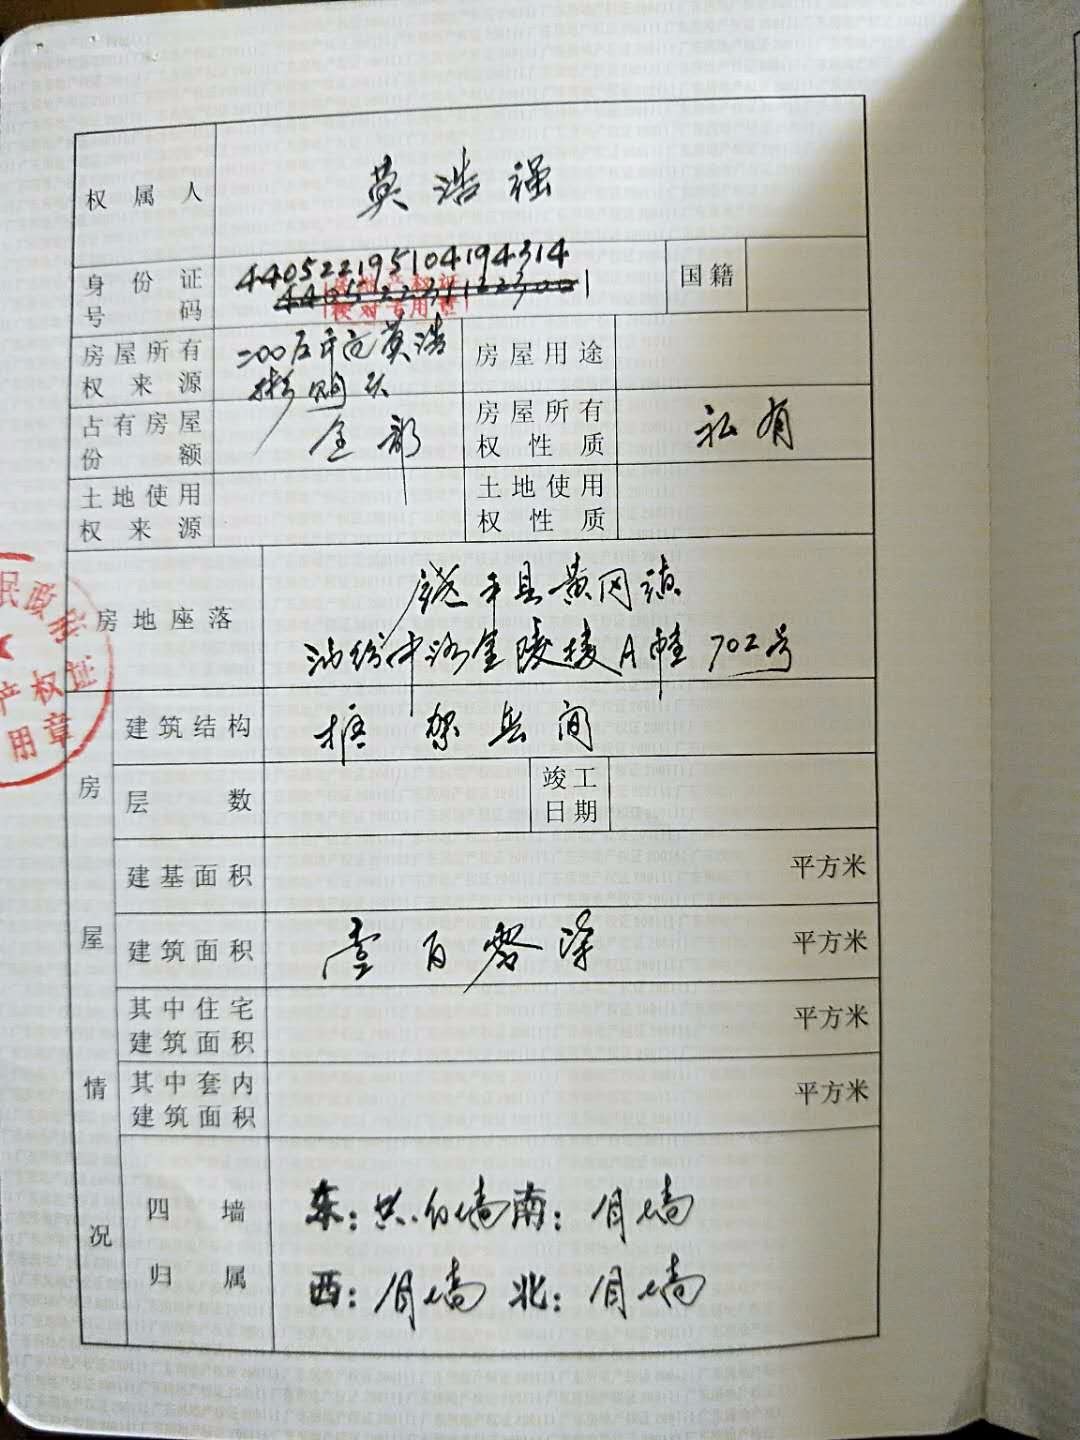 权属人 英浩强
身份证号码 440522195104194314
校对专用章
国籍
房屋所有权来源 二00 年向英浩彬购买
房屋用途
占有房屋份额 全部
房屋所有权性质 私有
土地使用权来源
土地使用权性质
民政府
产权证
用章
房地座落 饶平县黄冈镇
中路金陵楼A幢702号
房屋情况
建筑结构 框架 间
层数
竣工日期
建基面积 平方米
建筑面积 壹百零 平方米
其中住宅建筑面积 平方米
其中套内建筑面积 平方米
四墙归属
东:共 墙 南:自墙
西:自墙 北:自墙